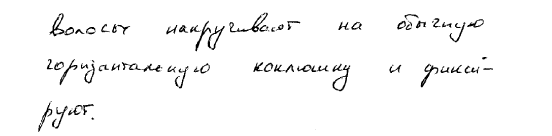 Волосы накручивают на обычную
горизантальную коклюшку и фикси-
руют.